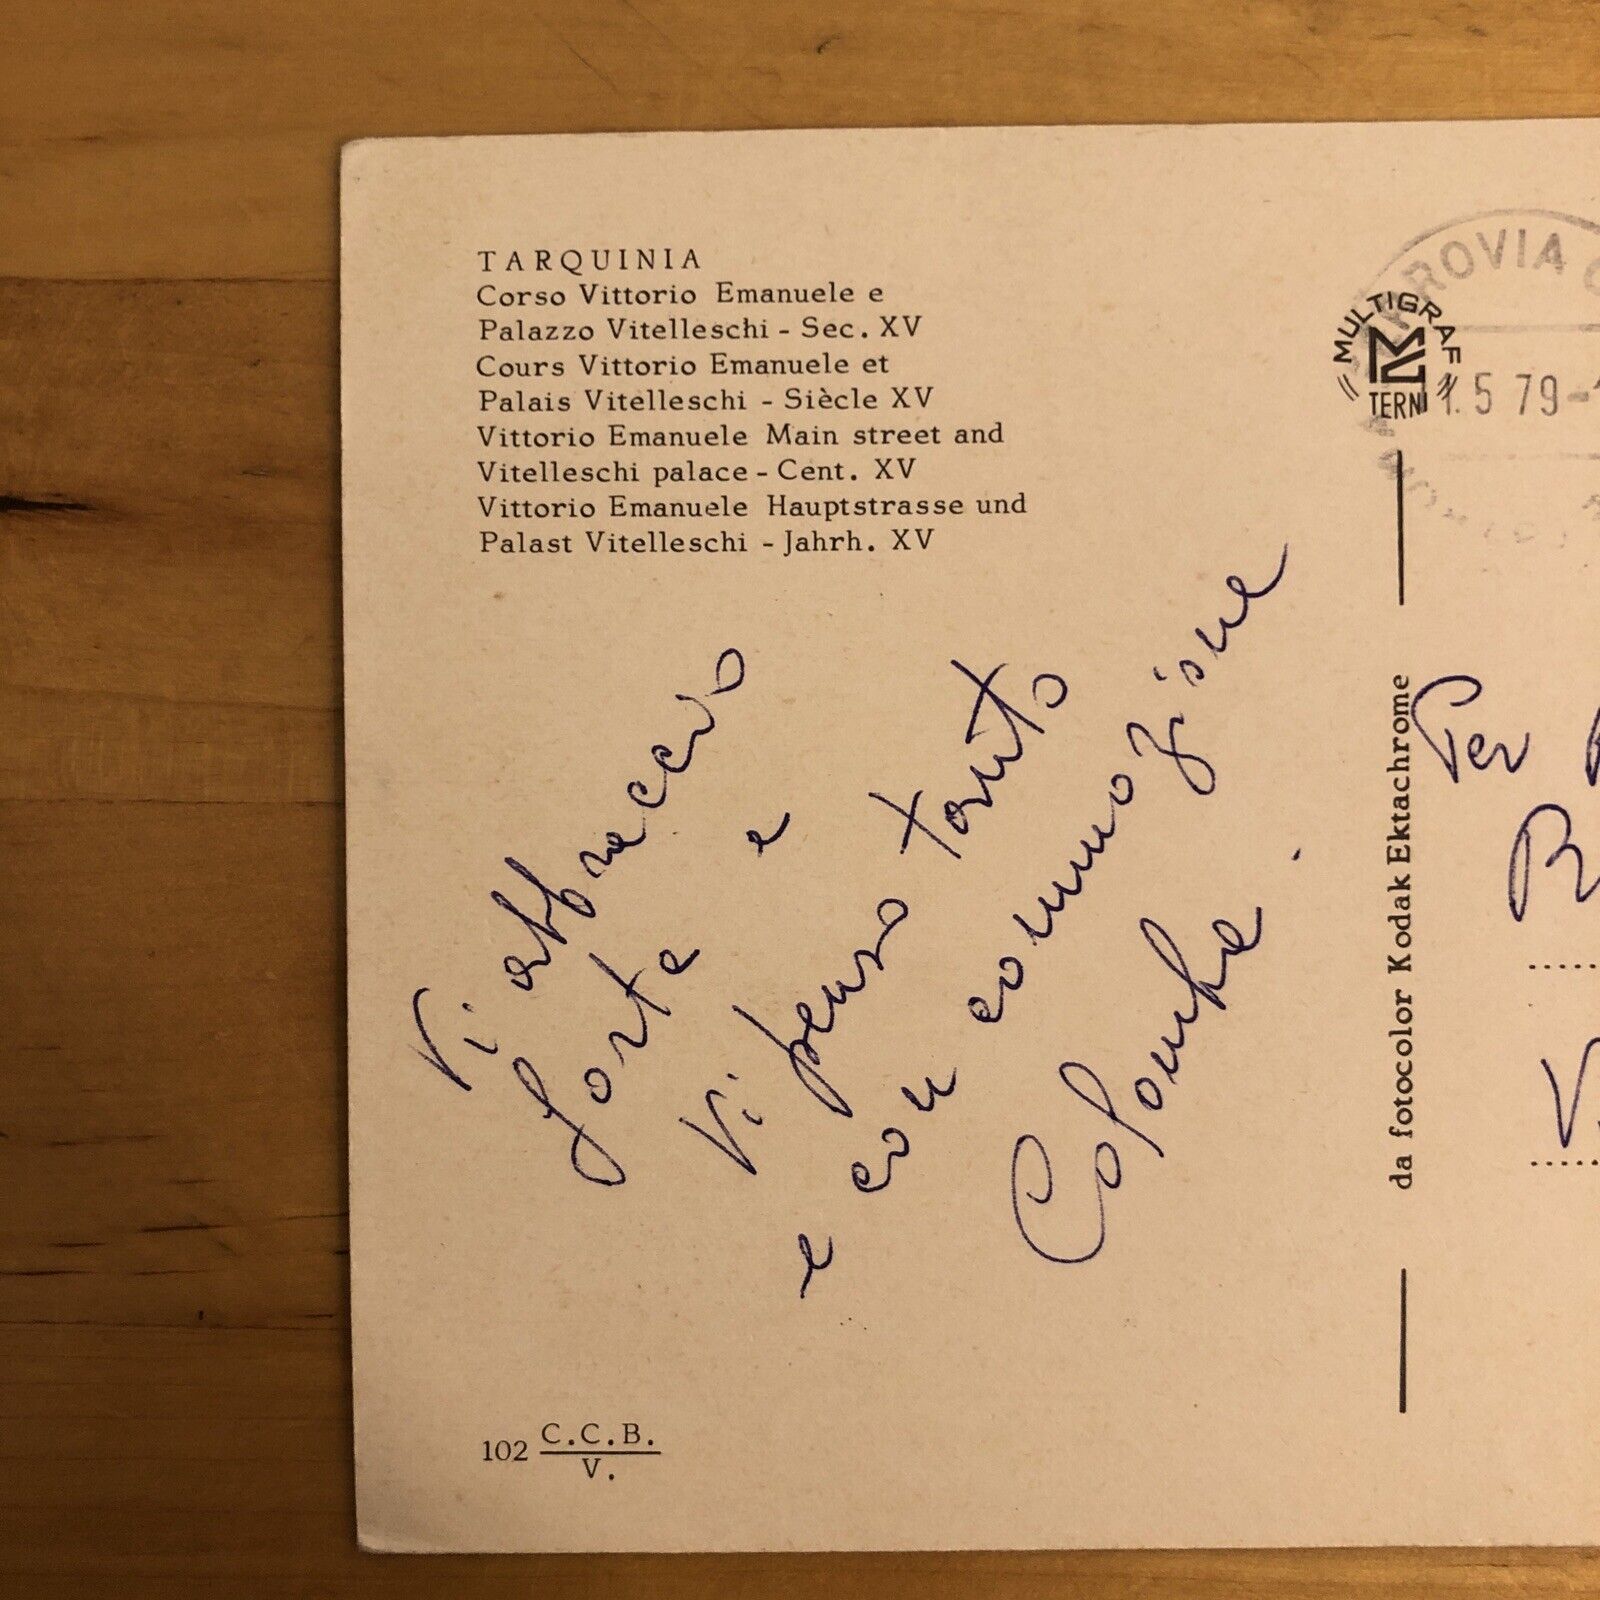 TARQUINIA
Corso Vittorio Emanuele e
Palazzo Vitelleschi - Sec. XV
Cours Vittorio Emanuele et
Palais Vitelleschi - Siècle XV
Vittorio Emanuele Main street and
Vitelleschi palace - Cent. XV
Vittorio Emanuele Hauptstrasse und
Palast Vitelleschi - Jahrh. XV
Vi abbraccio
forte e
Vi penso tanto
e con commozione
Colomba.
102 C.C.B.
V.
MULTIGRAF
TERNI
.5 79-
da fotocolor Kodak Ektachrome
Per